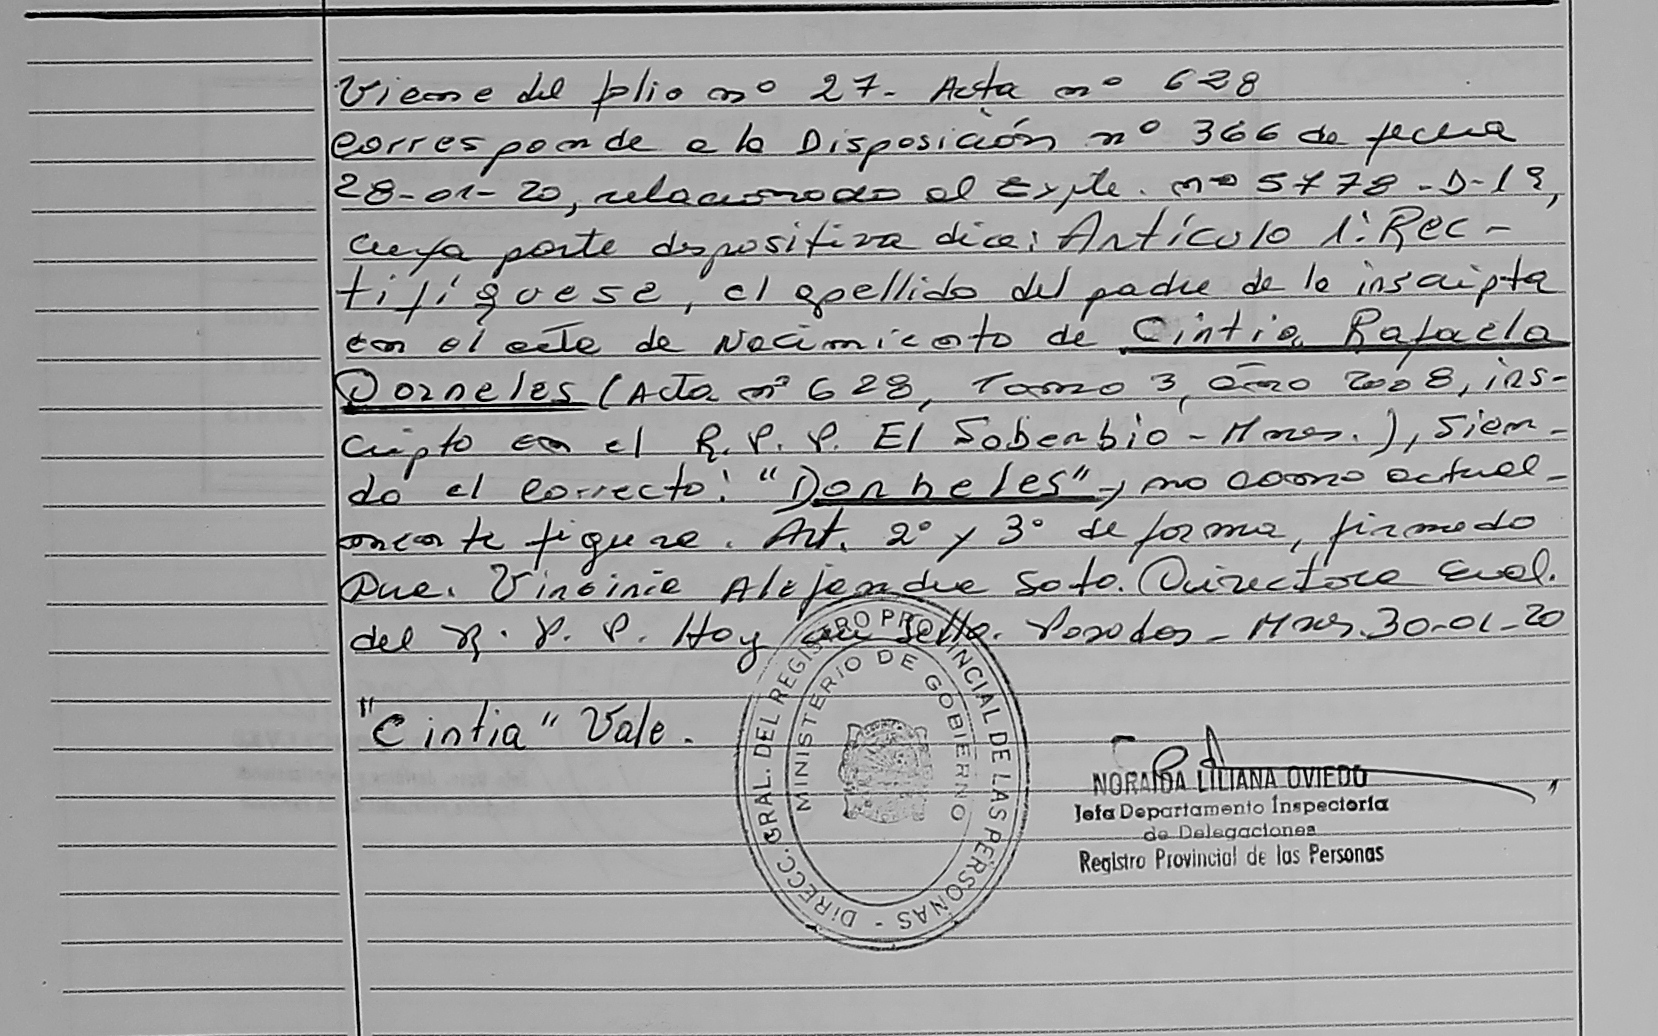 Viene del folio nº 27. Acta nº 628
corresponde a la Disposición nº 366 de fecha
28-01-20, relacionado al Expte. nº 5778-D-19,
cuya parte dispositiva dice: Artículo 1: Rec-
tifíquese, el apellido del padre de la inscripta
en el acta de Nacimiento de Cintia Rafaela
Dorneles (Acta nº 628, Tomo 3, año 2008, ins-
cripto en el R. P. P. El Soberbio - Mnes.), sien-
do el correcto: "Dorneles" y no como actual-
mente figura. Art. 2º y 3º de forma, firmado
Dra. Virginia Alejandra Soto. Directora Gral.
del R. P. P. Hoy un sello. Posadas - Mnes. 30-01-20
"Cintia" Vale.
DIRECC. GRAL. DEL REGISTRO PROVINCIAL DE LAS PERSONAS -
MINISTERIO DE GOBIERNO
NORAIDA LILIANA OVIEDO
Jefa Departamento Inspectoría
de Delegaciones
Registro Provincial de las Personas